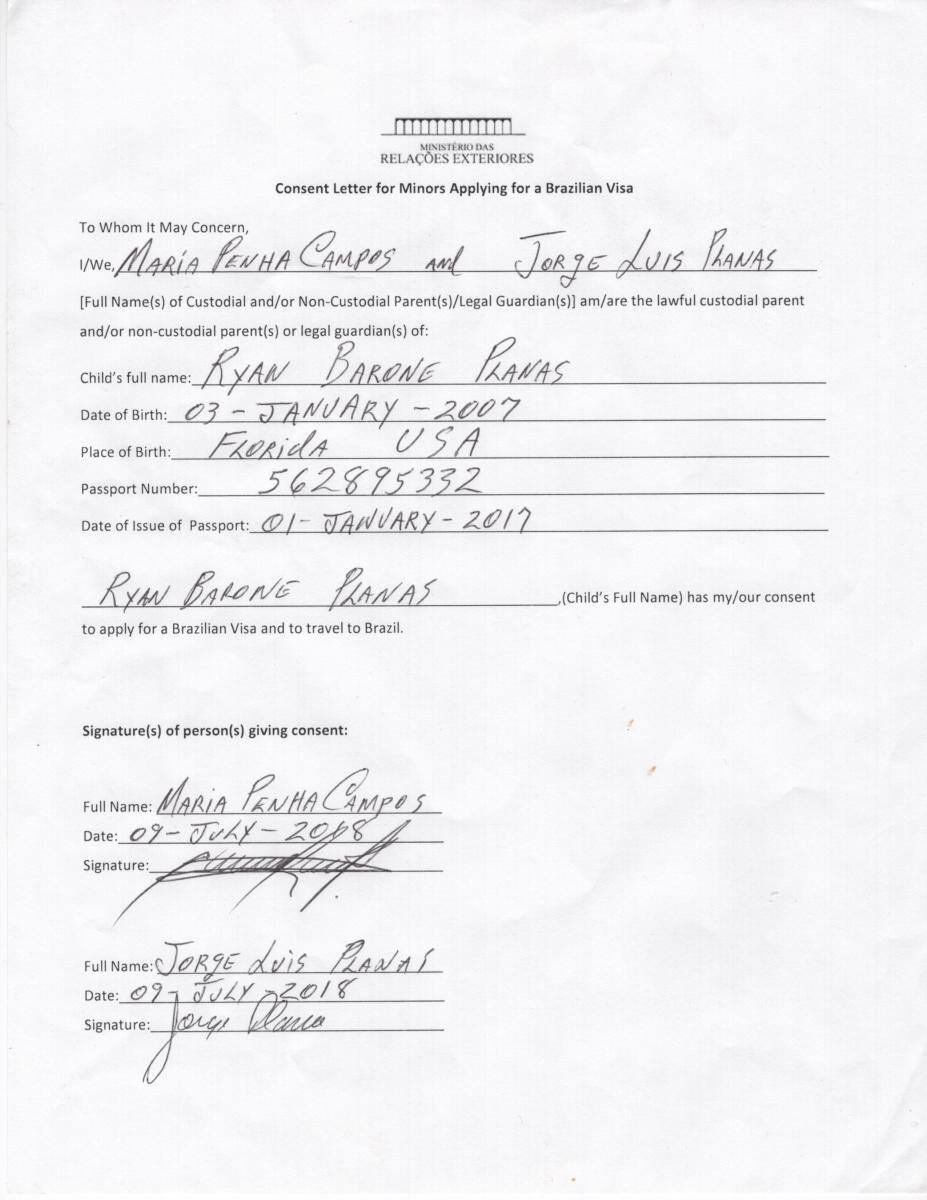 MINISTÉRIO DAS
RELAÇÕES EXTERIORES
Consent Letter for Minors Applying for a Brazilian Visa
To Whom It May Concern,
I/We, MARIA PENHA CAMPOS AND JORGE LUIS PLANAS
[Full Name(s) of Custodial and/or Non-Custodial Parent(s)/Legal Guardian(s)] am/are the lawful custodial parent
and/or non-custodial parent(s) or legal guardian(s) of:
Child's full name: RYAN BARONE PLANAS
Date of Birth: 03 - JANUARY - 2007
Place of Birth: FLORIDA USA
Passport Number: 562895332
Date of Issue of Passport: 01 - JANUARY - 2017
RYAN BARONE PLANAS ,(Child's Full Name) has my/our consent
to apply for a Brazilian Visa and to travel to Brazil.
Signature(s) of person(s) giving consent:
Full Name: MARIA PENHA CAMPOS
Date: 09 - JULY - 2018
Signature:
Full Name: JORGE LUIS PLANAS
Date: 09 - JULY - 2018
Signature: Jorge Planas